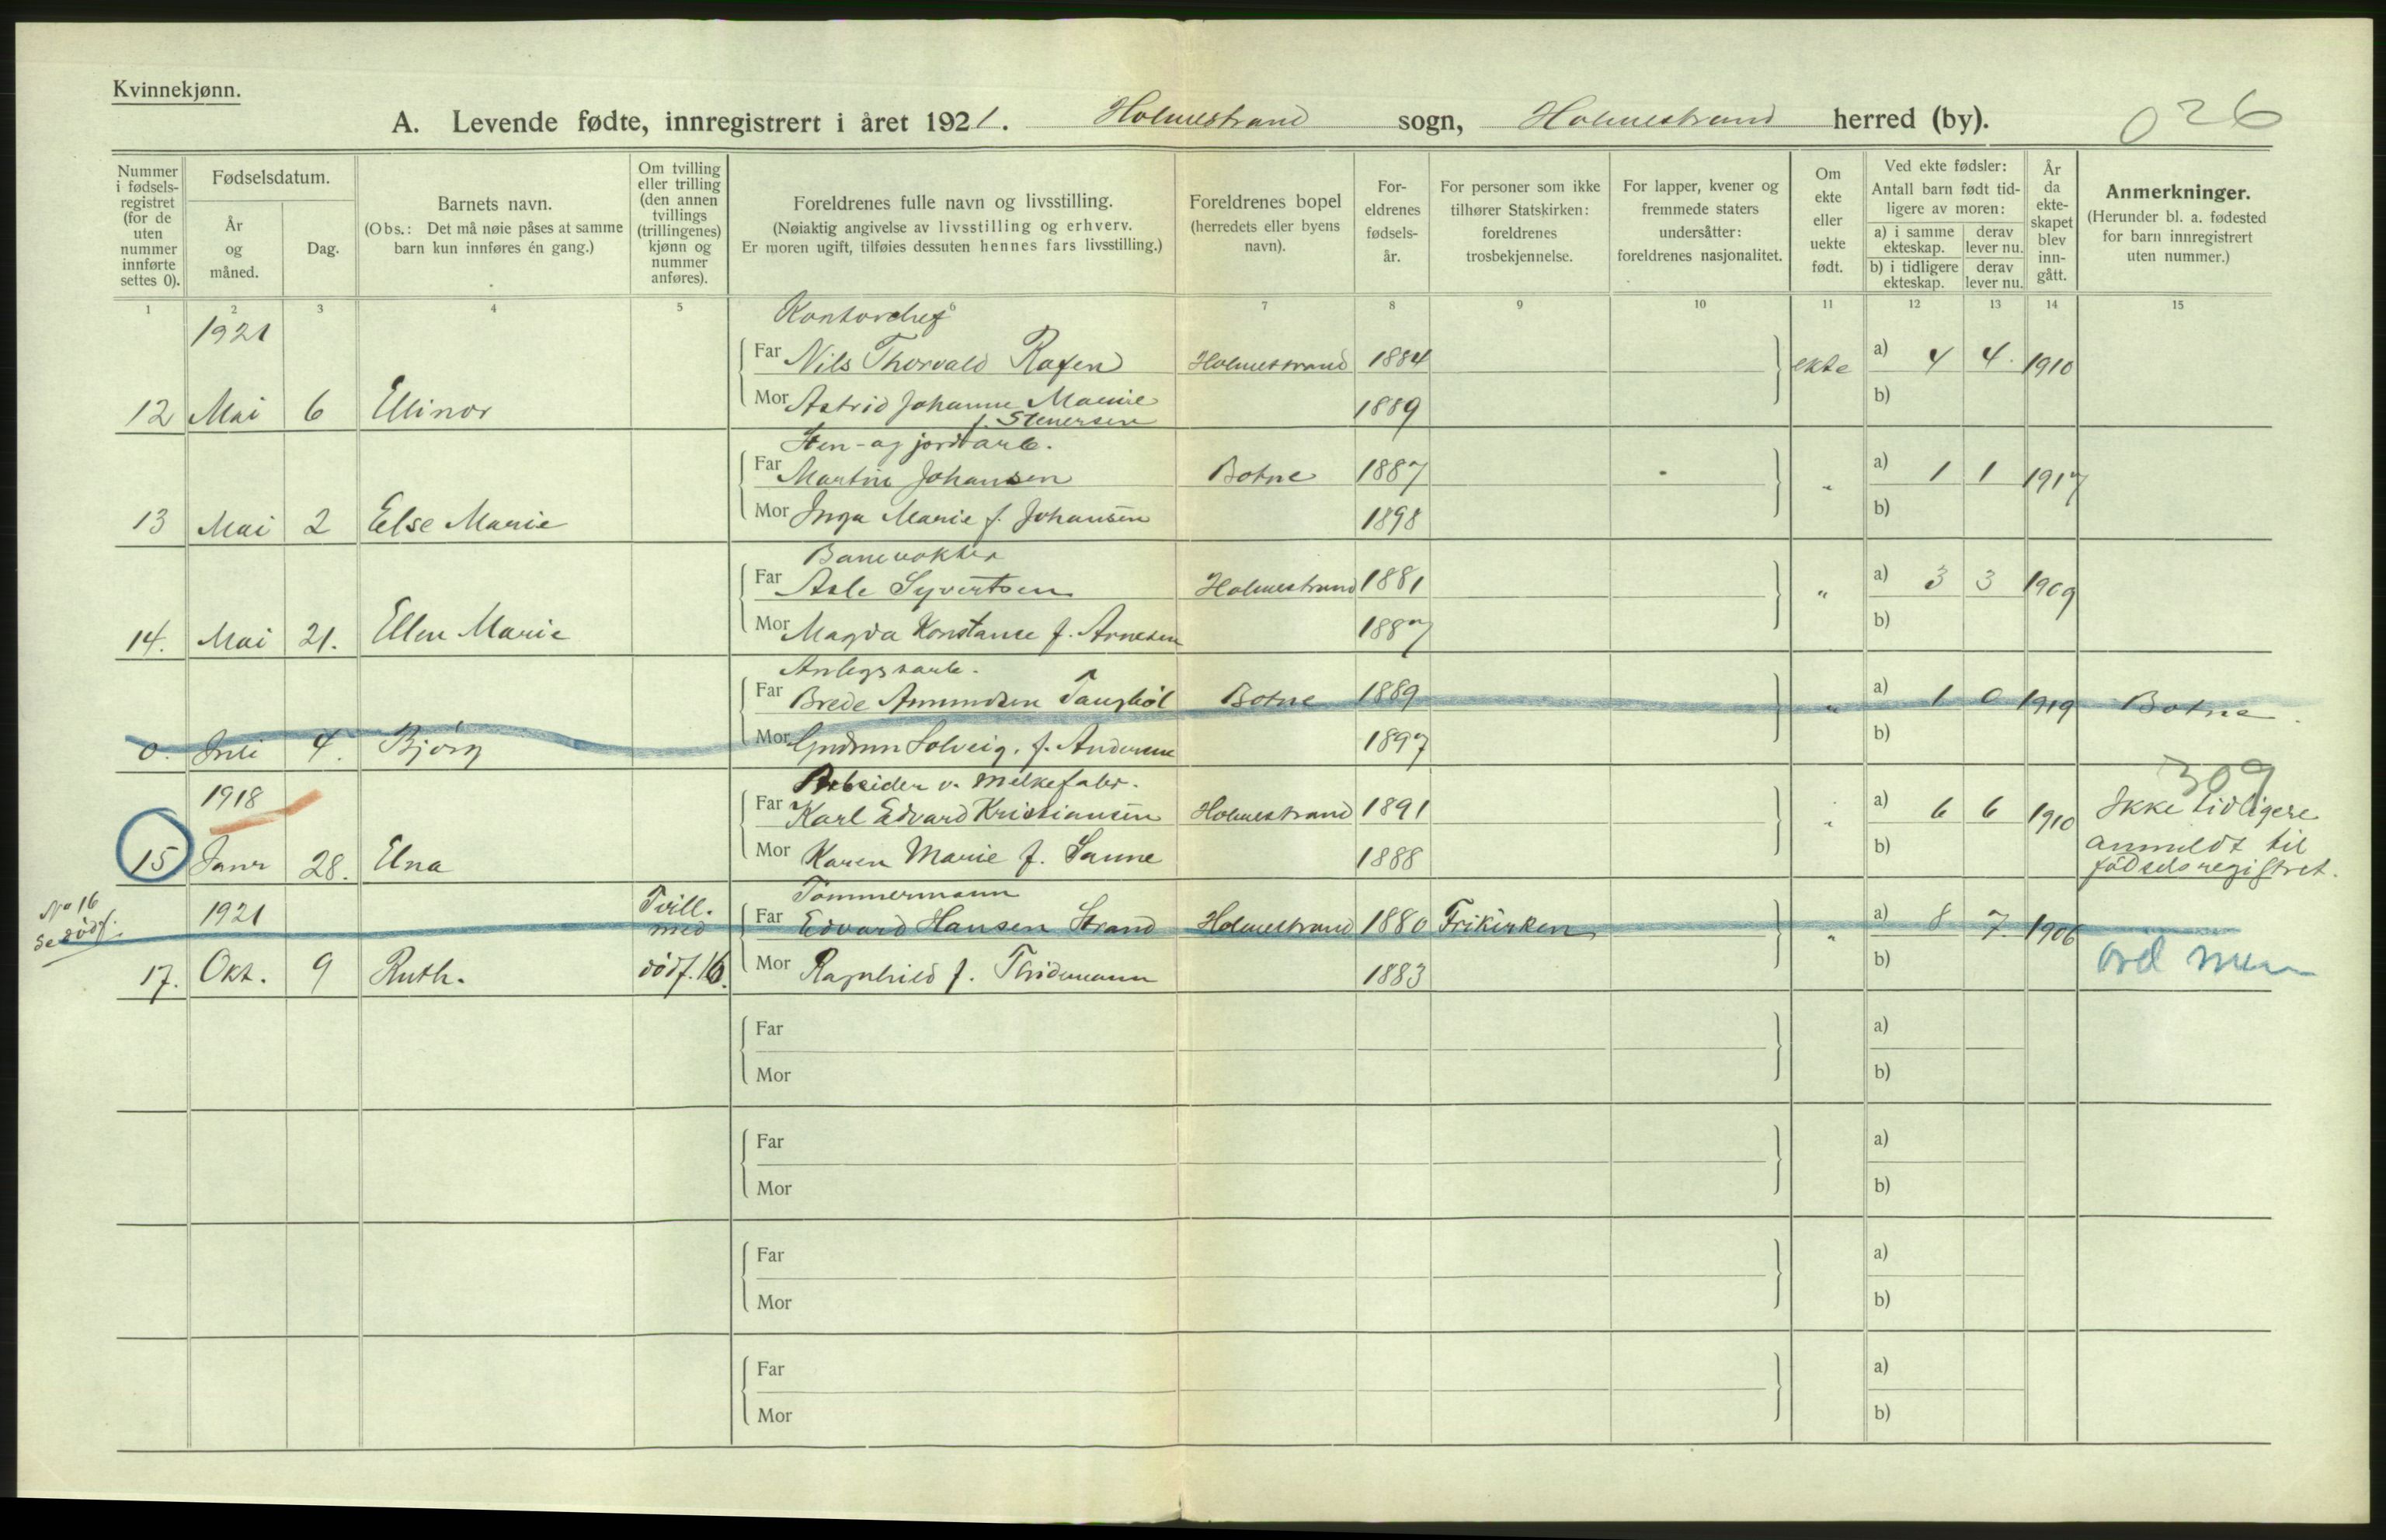 Kvinnekjønn.
A. Levende fødte, innregistrert i året 1921. Holmestrand sogn, Holmestrand herred (by). 026
Nummer i fødselsregistret (for de uten nummer innførte settes 0).
Fødselsdatum.
År og måned.
Dag.
Barnets navn.
(Obs.: Det må nøie påses at samme barn kun innføres én gang.)
Om tvilling eller trilling (den annen tvillings (trillingenes) kjønn og nummer anføres).
Foreldrenes fulle navn og livsstilling.
(Nøiaktig angivelse av livsstilling og erhverv.
Er moren ugift, tilføies dessuten hennes fars livsstilling.)
Foreldrenes bopel
(herredets eller byens navn).
Foreldrenes fødselsår.
For personer som ikke tilhører Statskirken: foreldrenes trosbekjennelse.
For lapper, kvener og fremmede staters undersåtter: foreldrenes nasjonalitet.
Om ekte eller uekte født.
Ved ekte fødsler:
Antall barn født tidligere av moren:
a) i samme ekteskap. derav lever nu.
b) i tidligere ekteskap. derav lever nu.
År da ekteskapet blev inngått.
Anmerkninger.
(Herunder bl. a. fødested for barn innregistrert uten nummer.)
1 2 3 4 5 6 7 8 9 10 11 12 13 14 15
1921 Kontorchef
Far Nils Thorvald Rafen Holmestrand 1884 ekte a) 4 4. 1910
12 Mai 6 Ellinor Mor Astrid Johanne Marie 1889 b)
f. Stenersen
Sten- og jordarb.
Far Martin Johansen Botne 1887 " a) 1 1 1917
13 Mai 2 Else Marie Mor Inga Marie f. Johansen 1898 b)
Banevokter
Far Asle Syvertsen Holmestrand 1881 " a) 3 3 1909
14. Mai 21. Ellen Marie Mor Magda Konstanse f. Arnesen 1887 b)
Anlegsarb.
Far Brede Amundsen Botne 1889 " a) 1 0 1919 Botne.
0. Juli 4. Bjørg Mor Gudrun Solveig, f. Andersen 1897 b)
1918 Arbeider v. Melkefabr. 309
Far Karl Edvard Kristiansen Holmestrand 1891 " a) 6 6 1910 Ikke tidligere
15 Janr 28. Elna Mor Karen Marie f. Sanne 1888 b) anmeldt til
fødselsregistret.
No 16 se dödf.
1921 Tvill. med Tømmermann
Far Edvard Hansen Strand Holmestrand 1880 Frikirken " a) 8 7. 1906
17. Okt. 9 Ruth. dödf. 16. Mor Ragnhild f. Thidemann 1883 b)
Far a)
Mor b)
Far a)
Mor b)
Far a)
Mor b)
Far a)
Mor b)